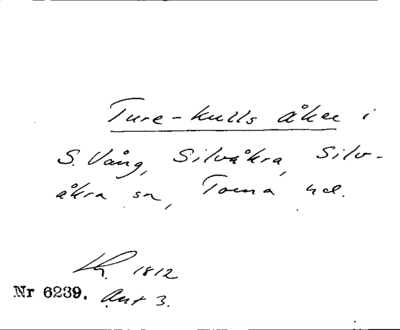 Ture-kulls åker i
S. Vång, Silvåkra, Silv-
åkra sn, Torna hd.
1812
Nr 6239. Akt 3.